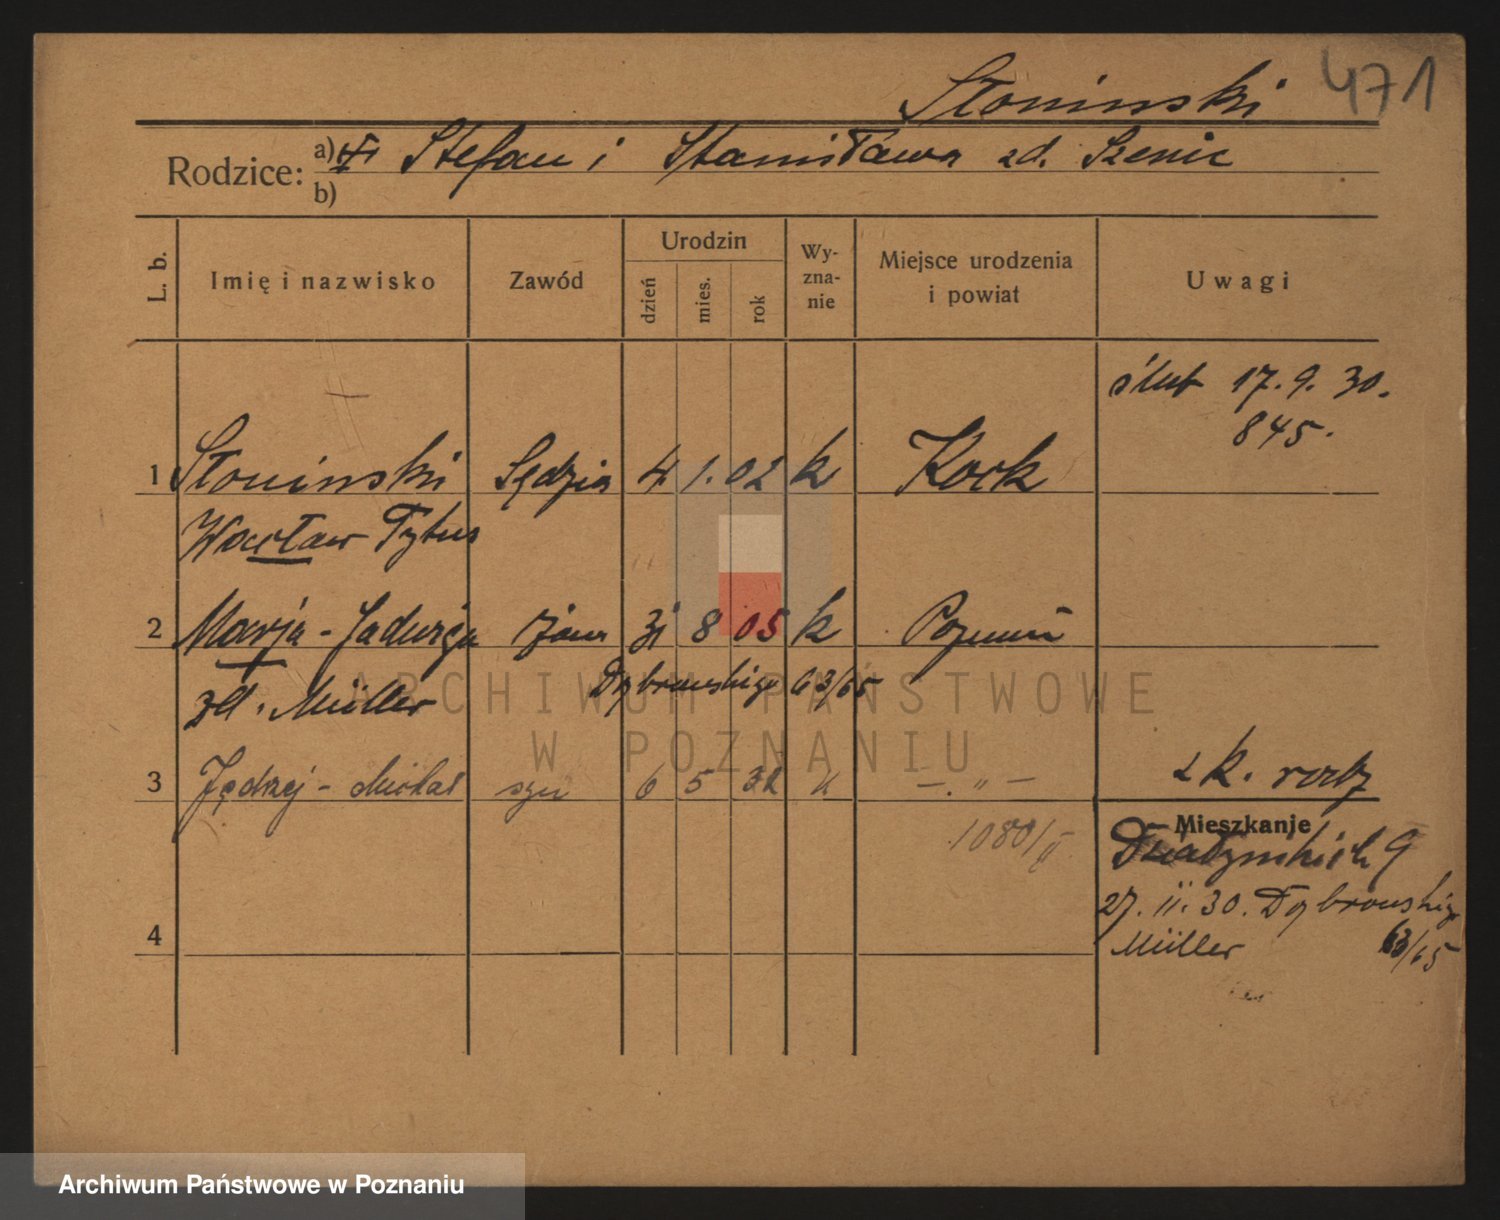 Słoninski 471
Rodzice: a) Stefan i Stanisława zd. Szenic
b)
L. b. Imię i nazwisko Zawód Urodzin dzień mies. rok Wy-zna-nie Miejsce urodzenia i powiat Uwagi
ślub 17. 9. 30.
845.
1 Słoninski Sędzia 4 1. 02 k Kock
Wacław Tytus
2 Marja - Jadwiga żona 31 8 05 k Poznań
zd. Müller Dąbrowskiego 63/65
ARCHIWUM PAŃSTWOWE
W POZNANIU
3 Jędrzej - Michał syn 6 5 32 " — . " —
z k. rodz
Mieszkanie
1080/II
Działyńskich 9
27. 11. 30. Dąbrowskiego
4 Müller 63/65
Archiwum Państwowe w Poznaniu